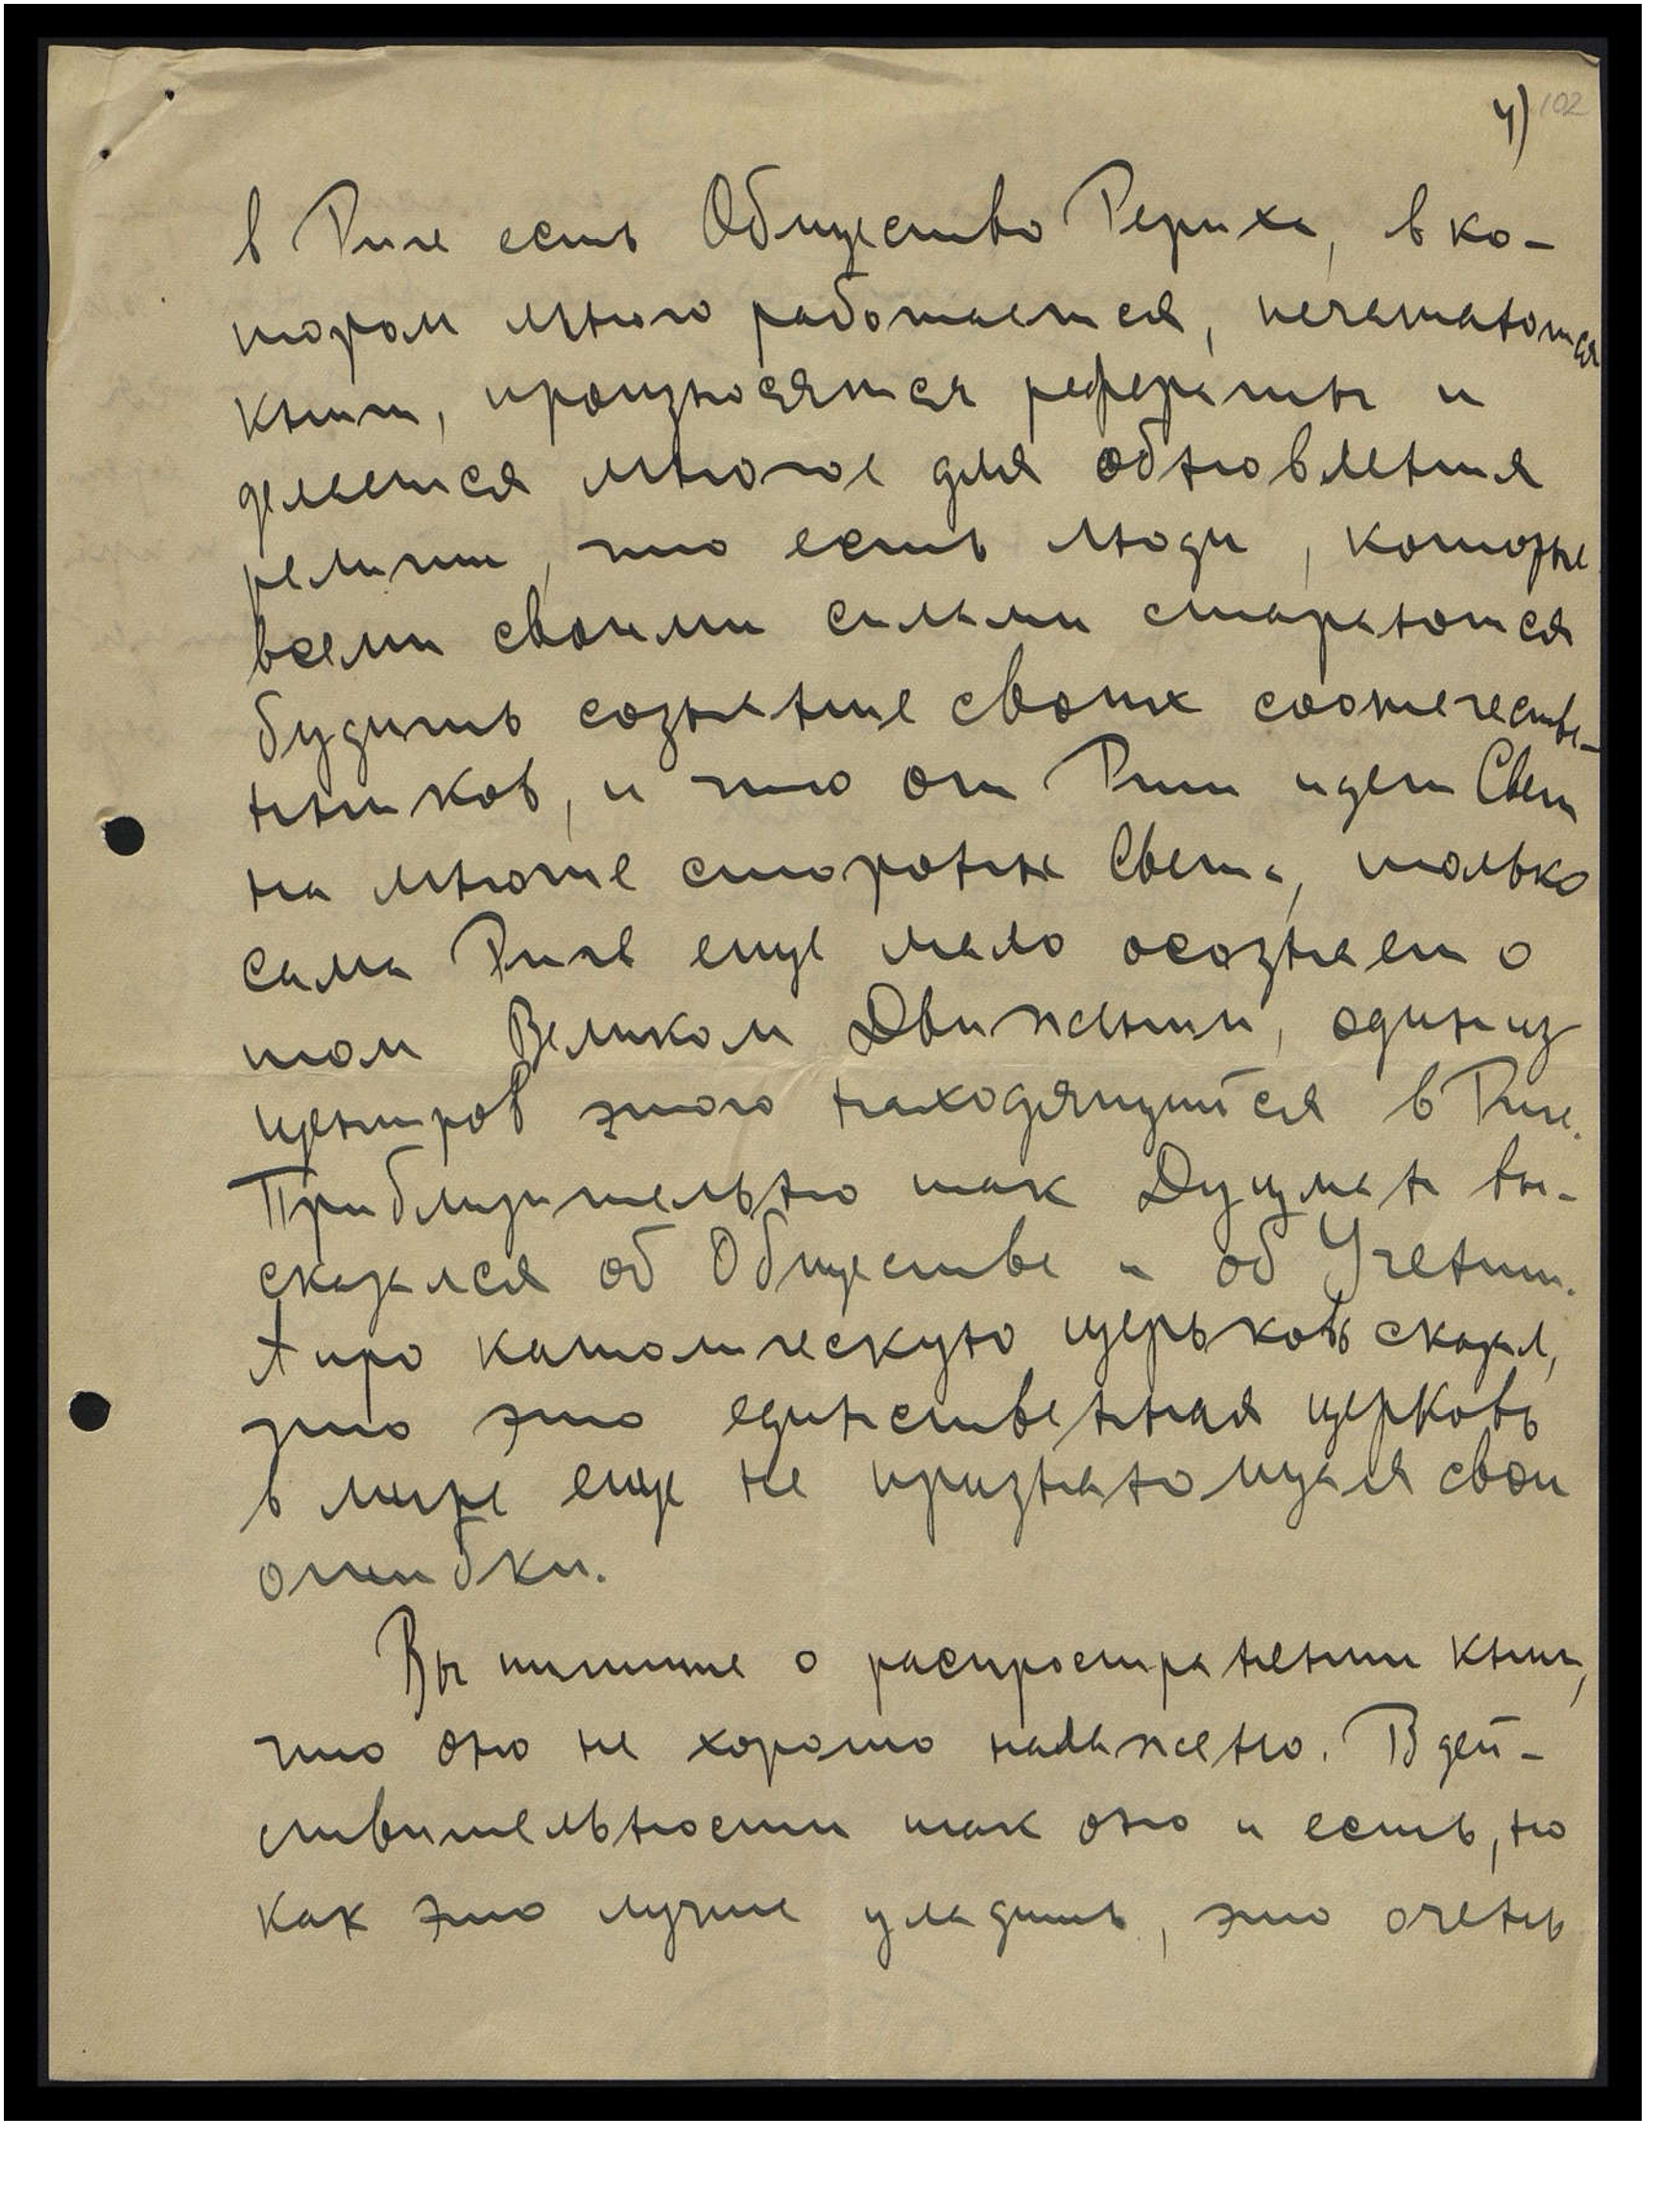 4) 102
в Риге есть Общество Рериха, в ко-
тором много работается, печатаются
книги, произносятся рефераты и
делается многое для обновления
религии, что есть люди, которые
всеми своими силами стараются
будить сознание своих соотечестве-
нников, и что от Риги идет Свет
на многие стороны Света, только
сама Рига еще мало осознает о
том Великом Движении, один из
центров этого находящийся в Риге.
Приблизительно так Дуцман вы-
сказался об Обществе и об Учении.
А про католическую церьковь сказал,
что это единственная церковь
в мире еще не признающая свои
ошибки.
Вы пишите о распространении книг,
что оно не хорошо налажено. В дей-
ствительности так оно и есть, но
как это лучше уладить, это очень